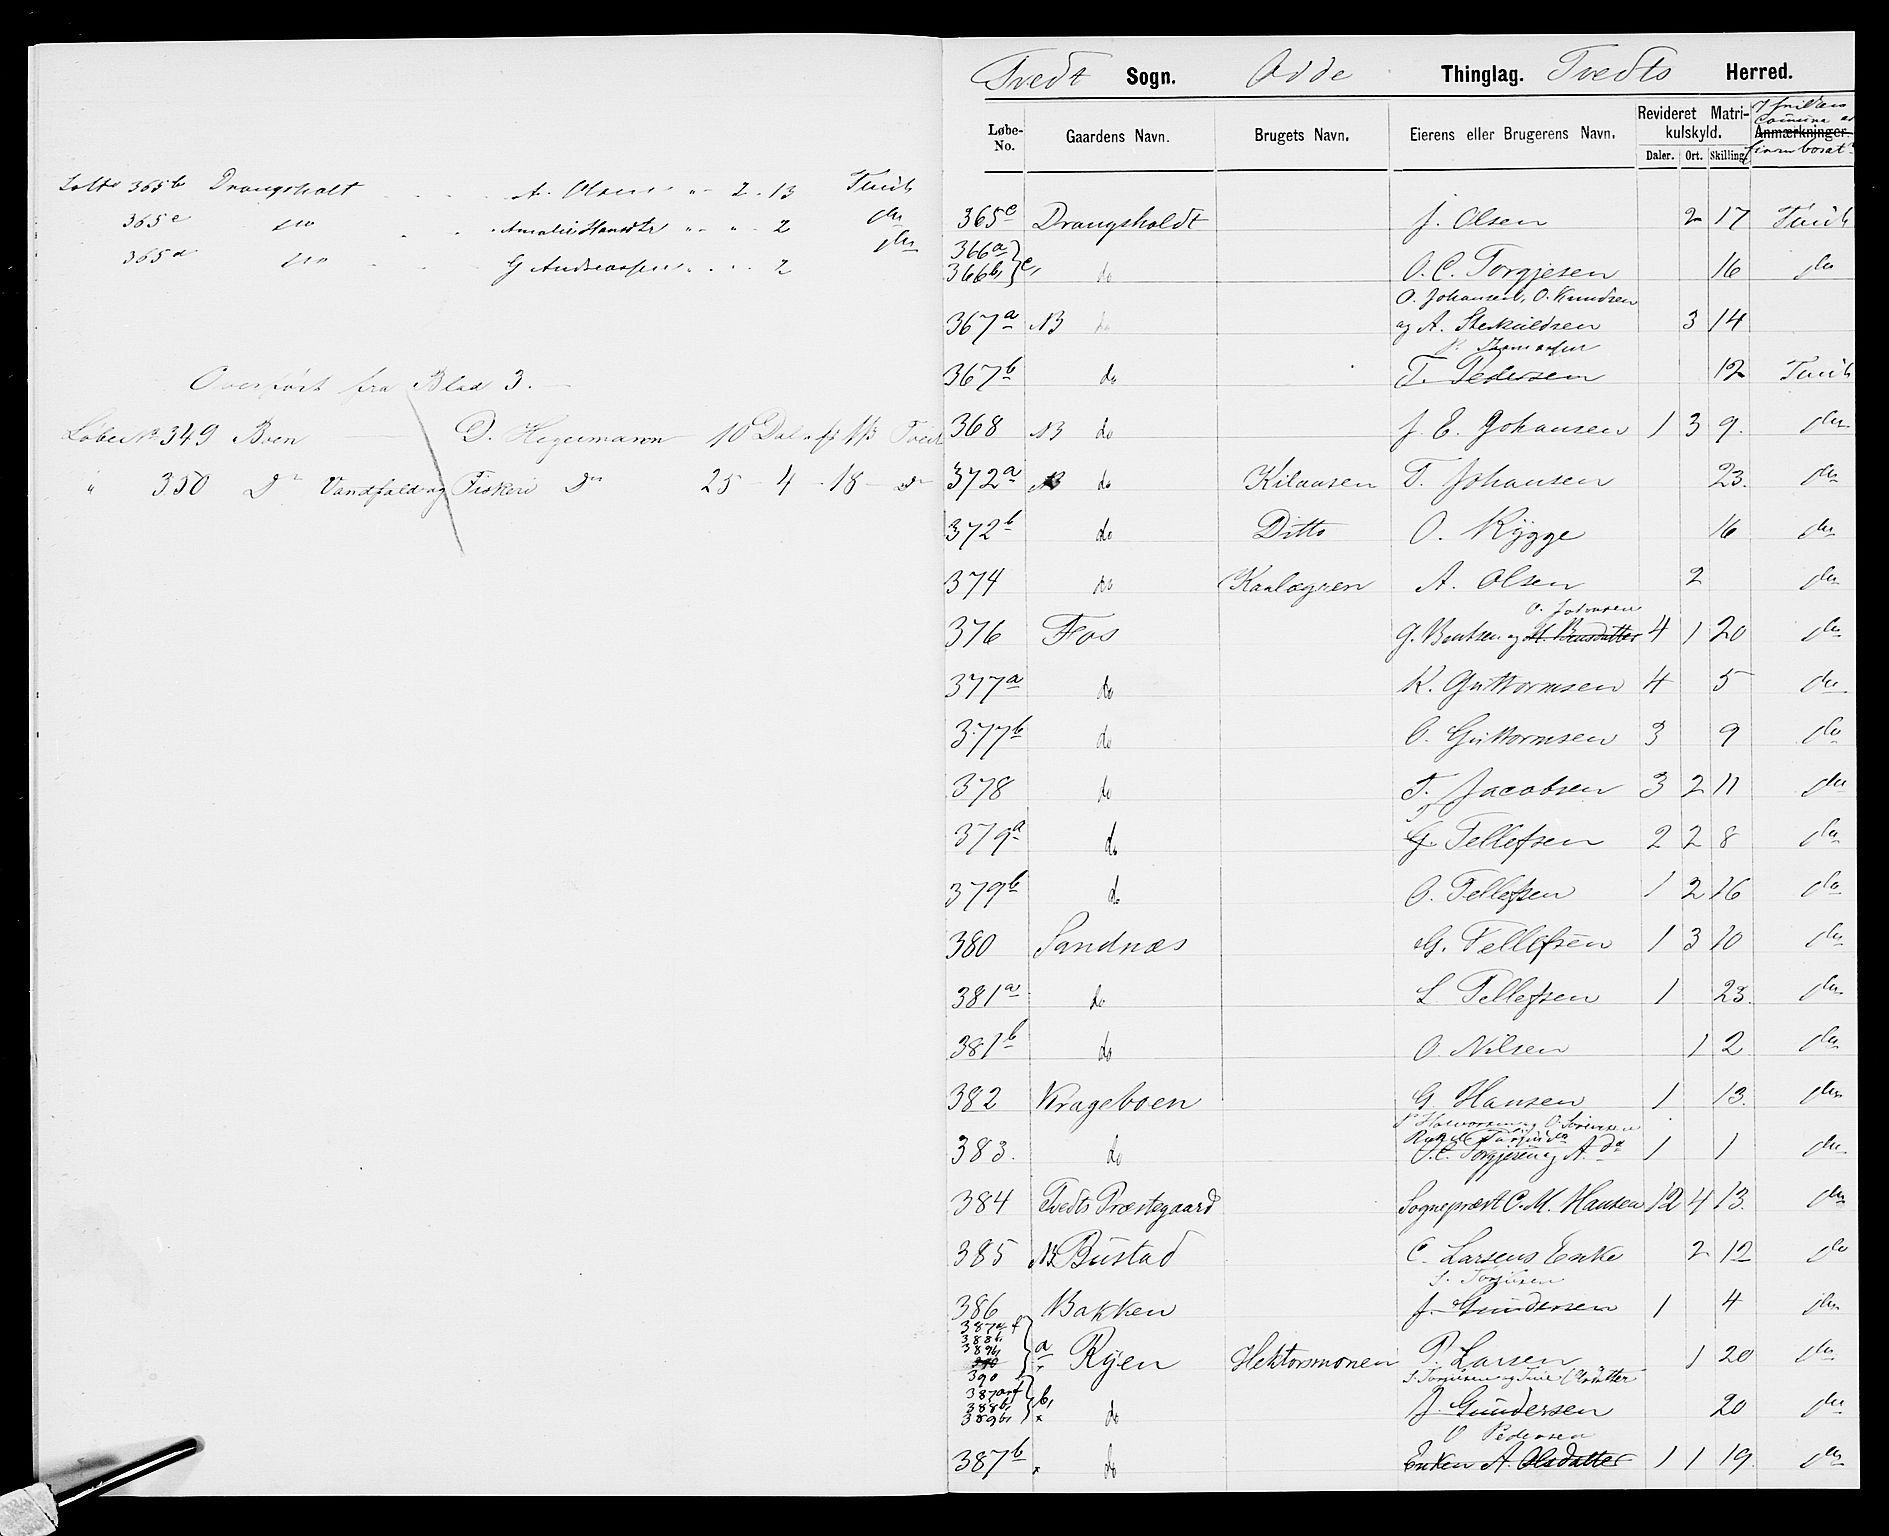 365b Drangsholt . . . A. Olsen " - 2 - 13 Tveit
365c do . . . " - " - 2 do
365d do . . . G Andreassen . . . 2 do
Overført fra Blad 3.
Løbe No 349 Boen D. Hegermann 10 Dal
" 350 Do Vandfald og Fiskeri Do 25 - 4 - 18 - Do
Tvedt Sogn. Odde Thinglag. Tvedts Herred.
Løbe-No. Gaardens Navn. Brugets Navn. Eierens eller Brugerens Navn. Revideret Matrikulskyld. Anmærkninger.
Daler. Ort. Skilling.
365e Drangsholdt J. Olsen 2 17 Tveit
366a
366b c, do O. C. Torgjesen 16 do
O. Johansen, O. Knudsen
367a NB do og A. 3 14
367b do T. Pedersen 12 Tveit
368 NB do J. E. Johansen 1 3 9. do
372a NB do Kilaasen T. Johansen 23. do
372b do Ditto O. Rygge 16 do
374 do A. Olsen 2 do
376 Fos G. Bentsen og 4 1 20 do
377a do K. Guttormsen 4 5 do
377b do O. Guttormsen 3 9 do
378 do T. Jacobsen 3 2 11 do
379a do G. Tellefsen 2 2 8 do
379b do O. Tellefsen 1 2 16 do
380 Sandnæs G. Tellefsen 1 3 10 do
381a do L Tellefsen 1 23. do
381b do O Nilsen 1 2 do
382 Krageboen G Hansen 1 13. do
383. do O. C. Torgjesen og A. do 1 1 do
384 Tvedts Præstegaard Sognepræst C. M. Hansen 12 4 13. do
385 NB Bustad C. Larsens Enke 2 12 do
386 Bakken J. Gundersen 1 4 do
387a f
388b
389b
390
390 a Ryen Hektormonen P. Larsen 1 20 do
387a f
388b
389b b, x do J. Gundersen 20 do
O Pedersen
387b x do Enken A. Olsdatter 1 1 19. do